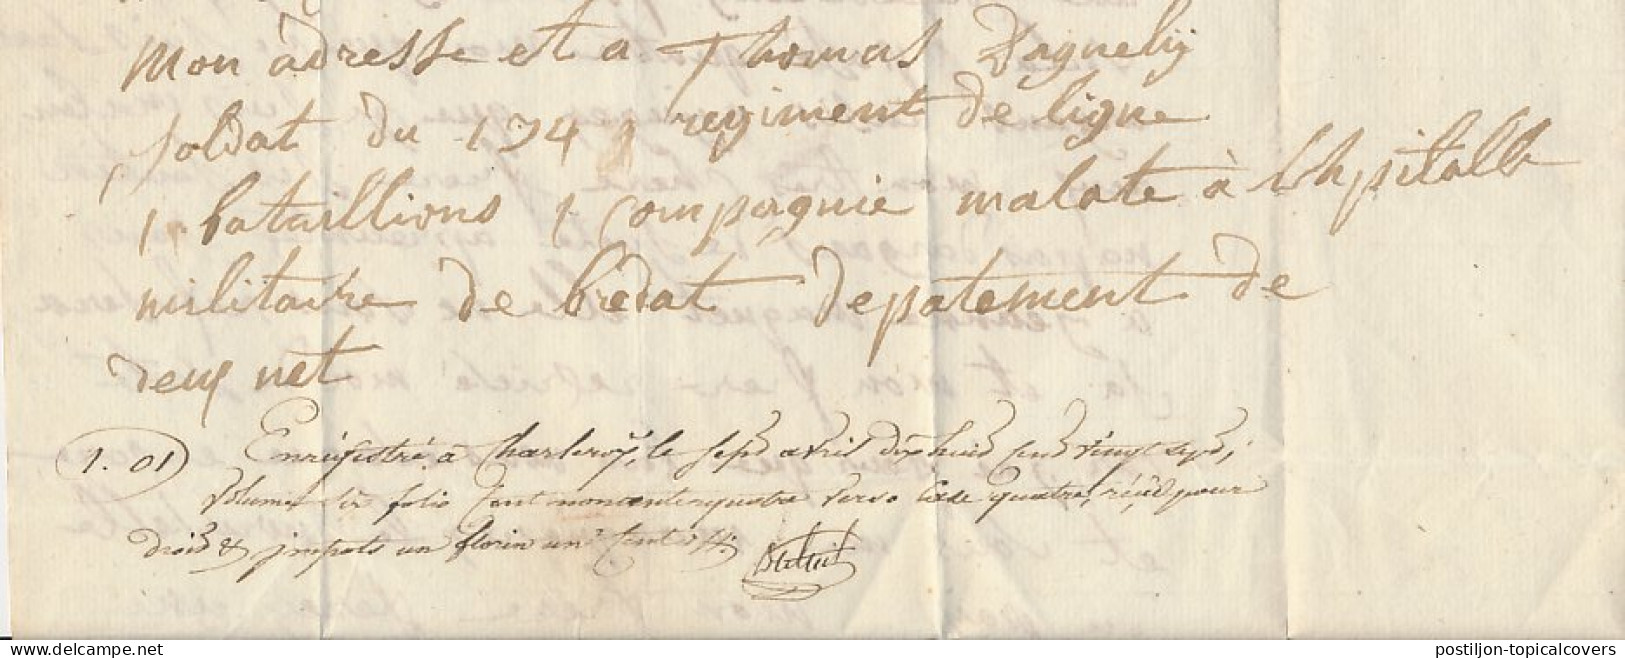 Mon adresse et a Thomas Dagnely
soldat du 134 regiment de ligne
1 bataillions 1 compagnie malate à lhpitalle
militaire de bredat depatement de
deux net
1.01 Enrégistré à Charleroy, le sept avril dix huit cent vingt sept,
volume six folio cent nonante quatre verso case quatre, reçu pour
droit & impots un florin un cent
delcampe.net
postiljon-topicalcovers